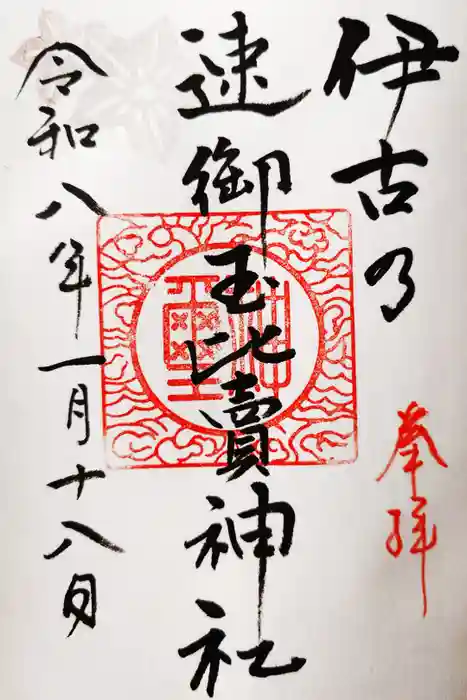 伊古乃
奉拝
速御玉比賣神社
令和八年一月十八日